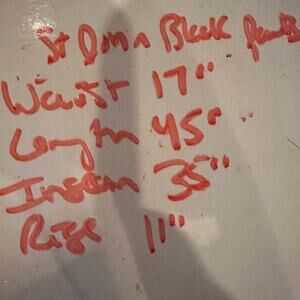 St John Black pants
Waist 17"
Length 45"
Inseam 35"
Rise 11"